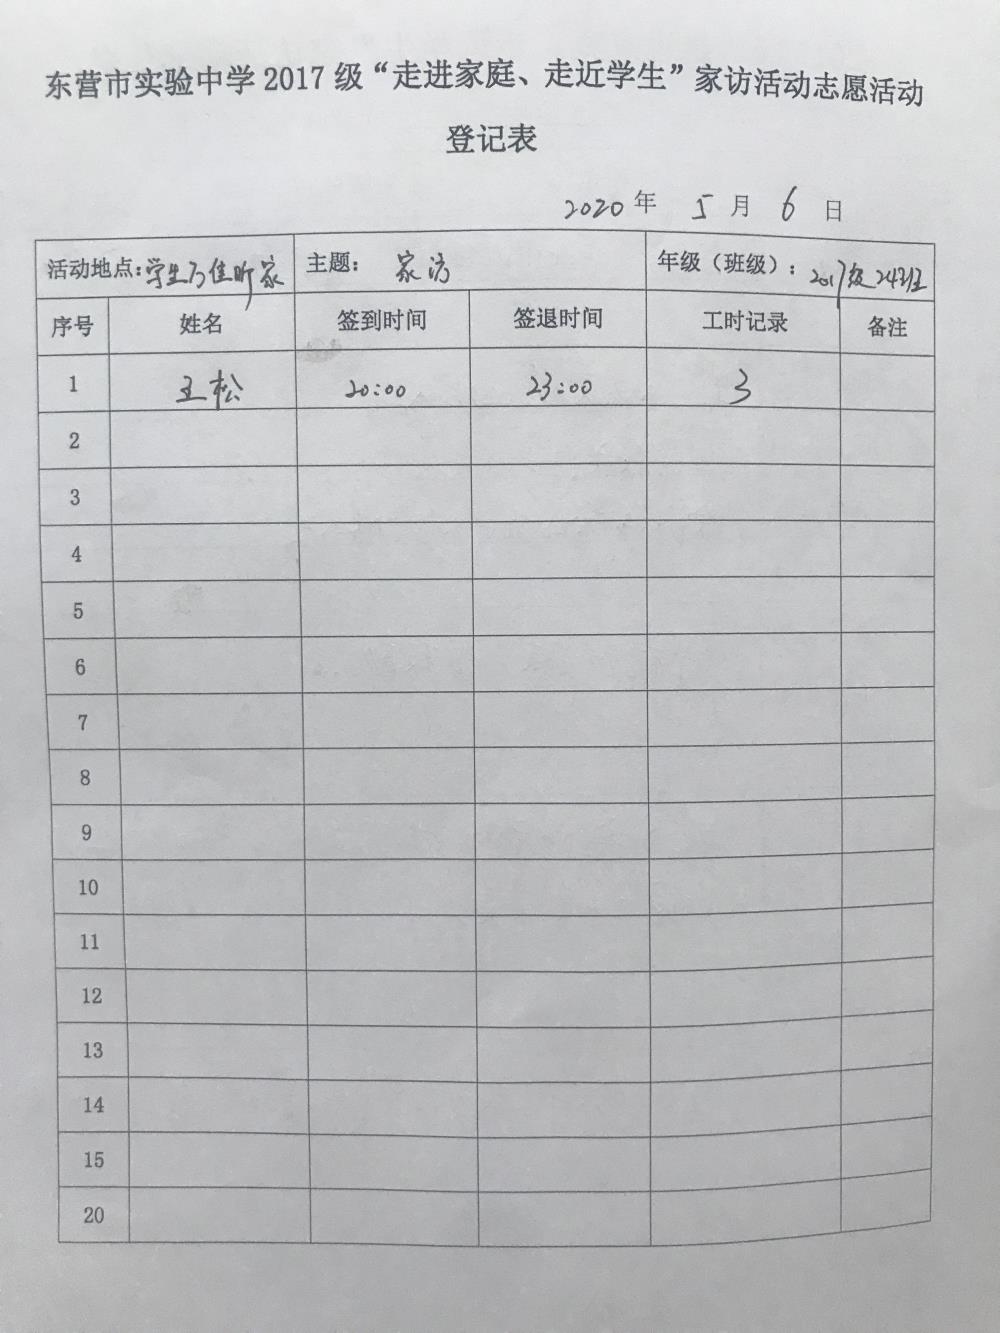 东营市实验中学 2017 级“走进家庭、走近学生”家访活动志愿活动
登记表
2020 年 5 月 6 日
活动地点：学生万佳昕家 主题： 家访 年级（班级）：2017级24班
序号 姓名 签到时间 签退时间 工时记录 备注
1 王松 20:00 23:00 3
2
3
4
5
6
7
8
9
10
11
12
13
14
15
20